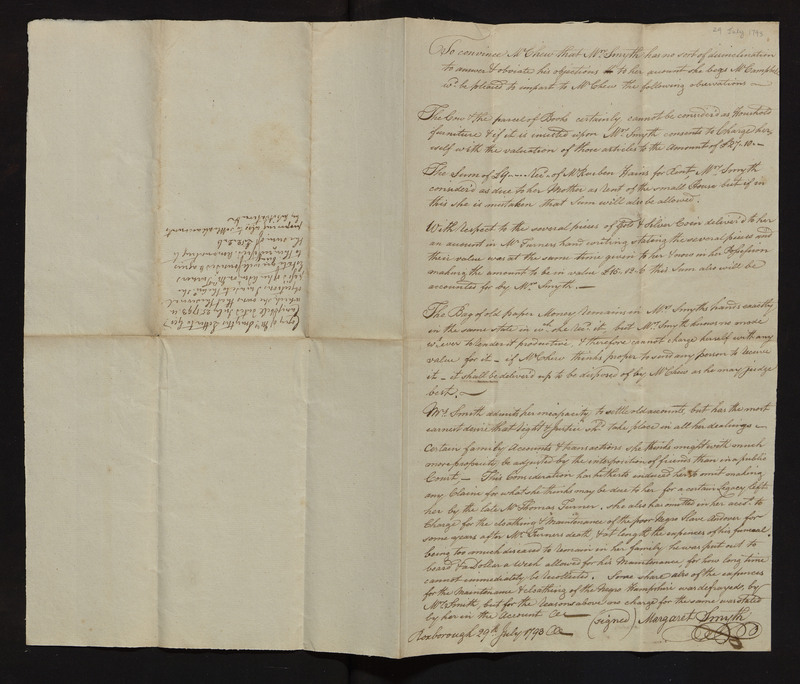 29 July 1793
To convince Mr Chew that Mrs Smyth has no sort of disinclination
to answer & obviate his objections to her amount she begs Mr Campbell
wd be pleased to impart to Mr Chew the following observations —
The Cow & the parcel of Books certainly cannot be consider'd as Household
furniture & if it is insisted upon Mrs Smyth consents to Charge her
self with the valuation of those articles to the amount of £27.10.—
The Sum of £9.— Recd of Mr Reuben Hains for Rent Mrs Smyth
consider'd as due to her Mother as Rent of the small House but if in
this she is mistaken that Sum will also be allowed.
With respect to the several pieces of Gold & Silver Coin deliver'd to her
an account in Mr Turners hand writing stating the several pieces and
their value was at the same time given to her & now in her Possession
making the amount to be in value £15.12.6 this Sum also will be
accounted for by Mrs Smyth.—
The Bag of old paper Money remains in Mrs Smyths hands exactly
in the same state in wch she recd it, but Mrs Smyth knows no mode
wtever to render it productive & therefore cannot charge herself with any
value for it — if Mr Chew thinks proper to send any person to receive
it — it shall be deliver'd up to be disposed of by Mr Chew as he may judge
best.—
Mrs Smith admits her incapacity to settle old accounts, but has the most
earnest desire that Right & Justice shd take place in all her dealings —
Certain family Accounts & transactions she thinks might with much
more propriety be adjusted by the interposition of friends than in a public
Court — This Consideration has hitherto induced her to omit making
any Claim for what she thinks may be due to her for a certain Legacy left
her by the late Mr Thomas Turner. She also has omitted in her acct to
Charge for the cloathing & Maintenance of the poor Negro Slave Andover for
some years after Mr Turners death, & at length the expences of his funeral.
being too much diseased to remain in her family he was put out to
board & a Dollar a Week allowed for his Maintenance, for how long time
cannot immediately be recollected. Some share also of the expences
for the Maintenance & cloathing of the Negro Hampshire was defrayed, by
Mrs Smith, but for the reasons above no charge for the same was stated
by her in the Account &c
(signed) Margaret Smyth
Roxborough 29th July 1793 &c
Copy of Mrs Smyth's Letter to Geo
Campbell dated July 29 1793 in
which she says that